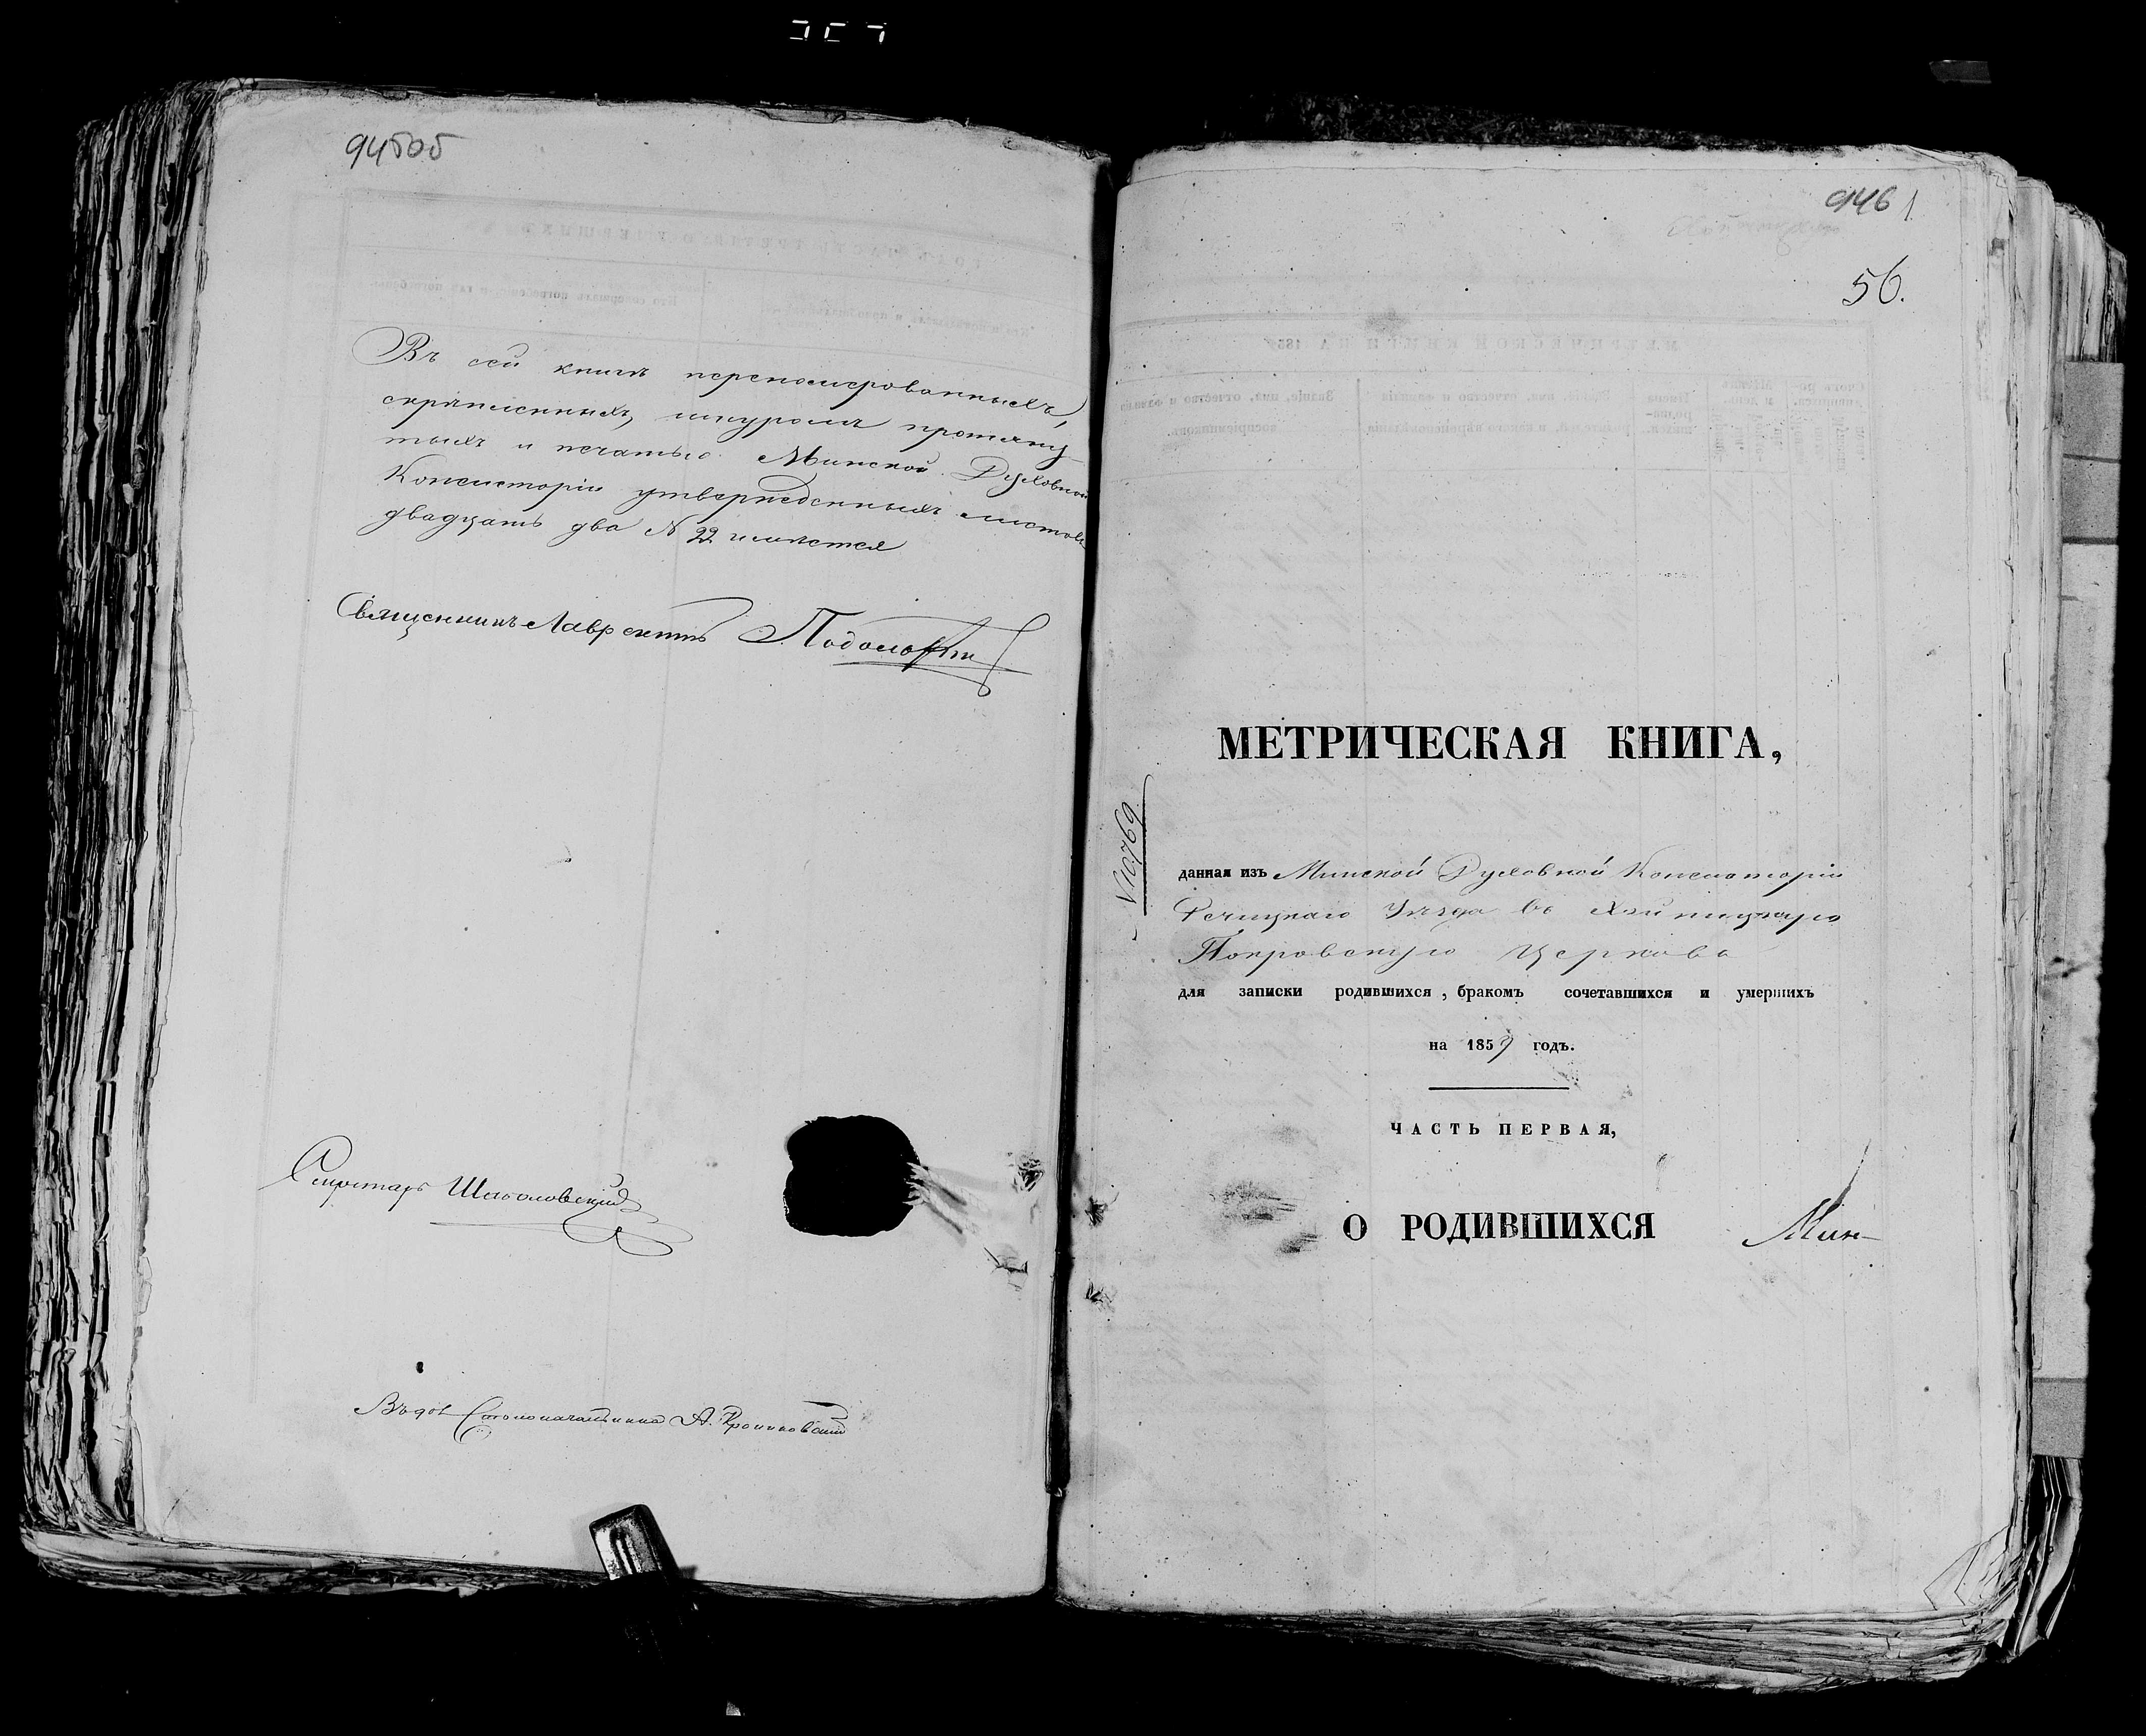 945об
Въ сей книгѣ переномерованныхъ,
скрѣпленныхъ, шнуромъ протяну-
тыхъ и печатью Минской Духовной
Консисторіи утвержденныхъ листовъ
двадцать два № 22 имѣется
Священникъ Лаврентій
Секретарь
Столоначальника А.
946 1
56.
МЕТРИЧЕСКАЯ КНИГА,
№ 10769
данная изъ Минской Духовной Консисторіи
Речицкаго Уѣзда въ Хойницкую
Покровскую Церковь
для записки родившихся, бракомъ сочетавшихся и умершихъ
на 1859 годъ.
ЧАСТЬ ПЕРВАЯ,
О РОДИВШИХСЯ
Мин-